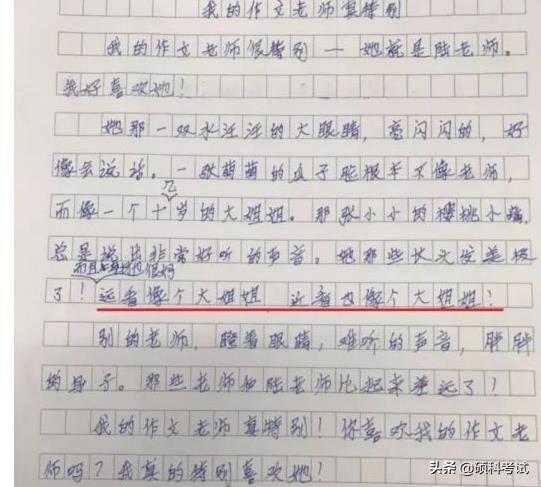 我的作文老师真特别
我的作文老师很特别——她就是陆老师。
我好喜欢她!
她那一双水汪汪的大眼睛,亮闪闪的,好
像会说话。一张萌萌的瓜子脸根本不像老师,
几
而像一个十岁的大姐姐。那张小小的樱桃小嘴,
总是说出非常好听的声音。她那些长头发美极
而且身材也很好
了!远看像个大姐姐,近看也像个大姐姐!
别的老师,瞪着眼睛,难听的声音,胖胖
的身子。那些老师和陆老师比起来差远了!
我的作文老师真特别!你喜欢我的作文老
师吗?我真的特别喜欢她!
头条 @硕科考试